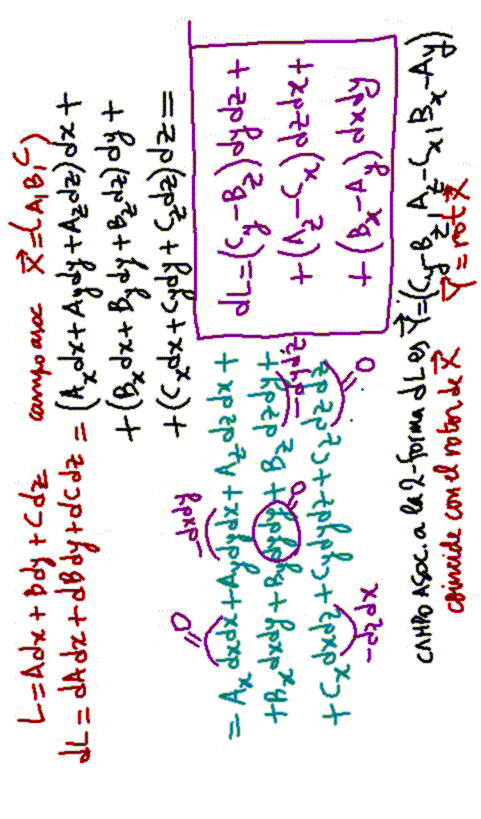 L=Adx+Bdy+Cdz campo asoc X⃗=(A,B,C)
dL=dAdx+dBdy+dCdz=(A_x dx+A_y dy+A_z dz)dx+
+(B_x dx+B_y dy+B_z dz)dy+
+(C_x dx+C_y dy+C_z dz)dz=
=0 -dxdy
=A_x dxdx+A_y dydx+A_z dzdx+
+B_x dxdy+B_y dydy+B_z dzdy+
=0 -dydz
+C_x dxdz+C_y dydz+C_z dzdz
-dzdx =0
dL=(C_y-B_z)dydz+
+(A_z-C_x)dzdx+
+(B_x-A_y)dxdy
CAMPO ASOC. a la 2-forma dL es Y⃗=(C_y-B_z, A_z-C_x, B_x-A_y)
coincide con el rotor de X⃗ Y⃗=rot X⃗